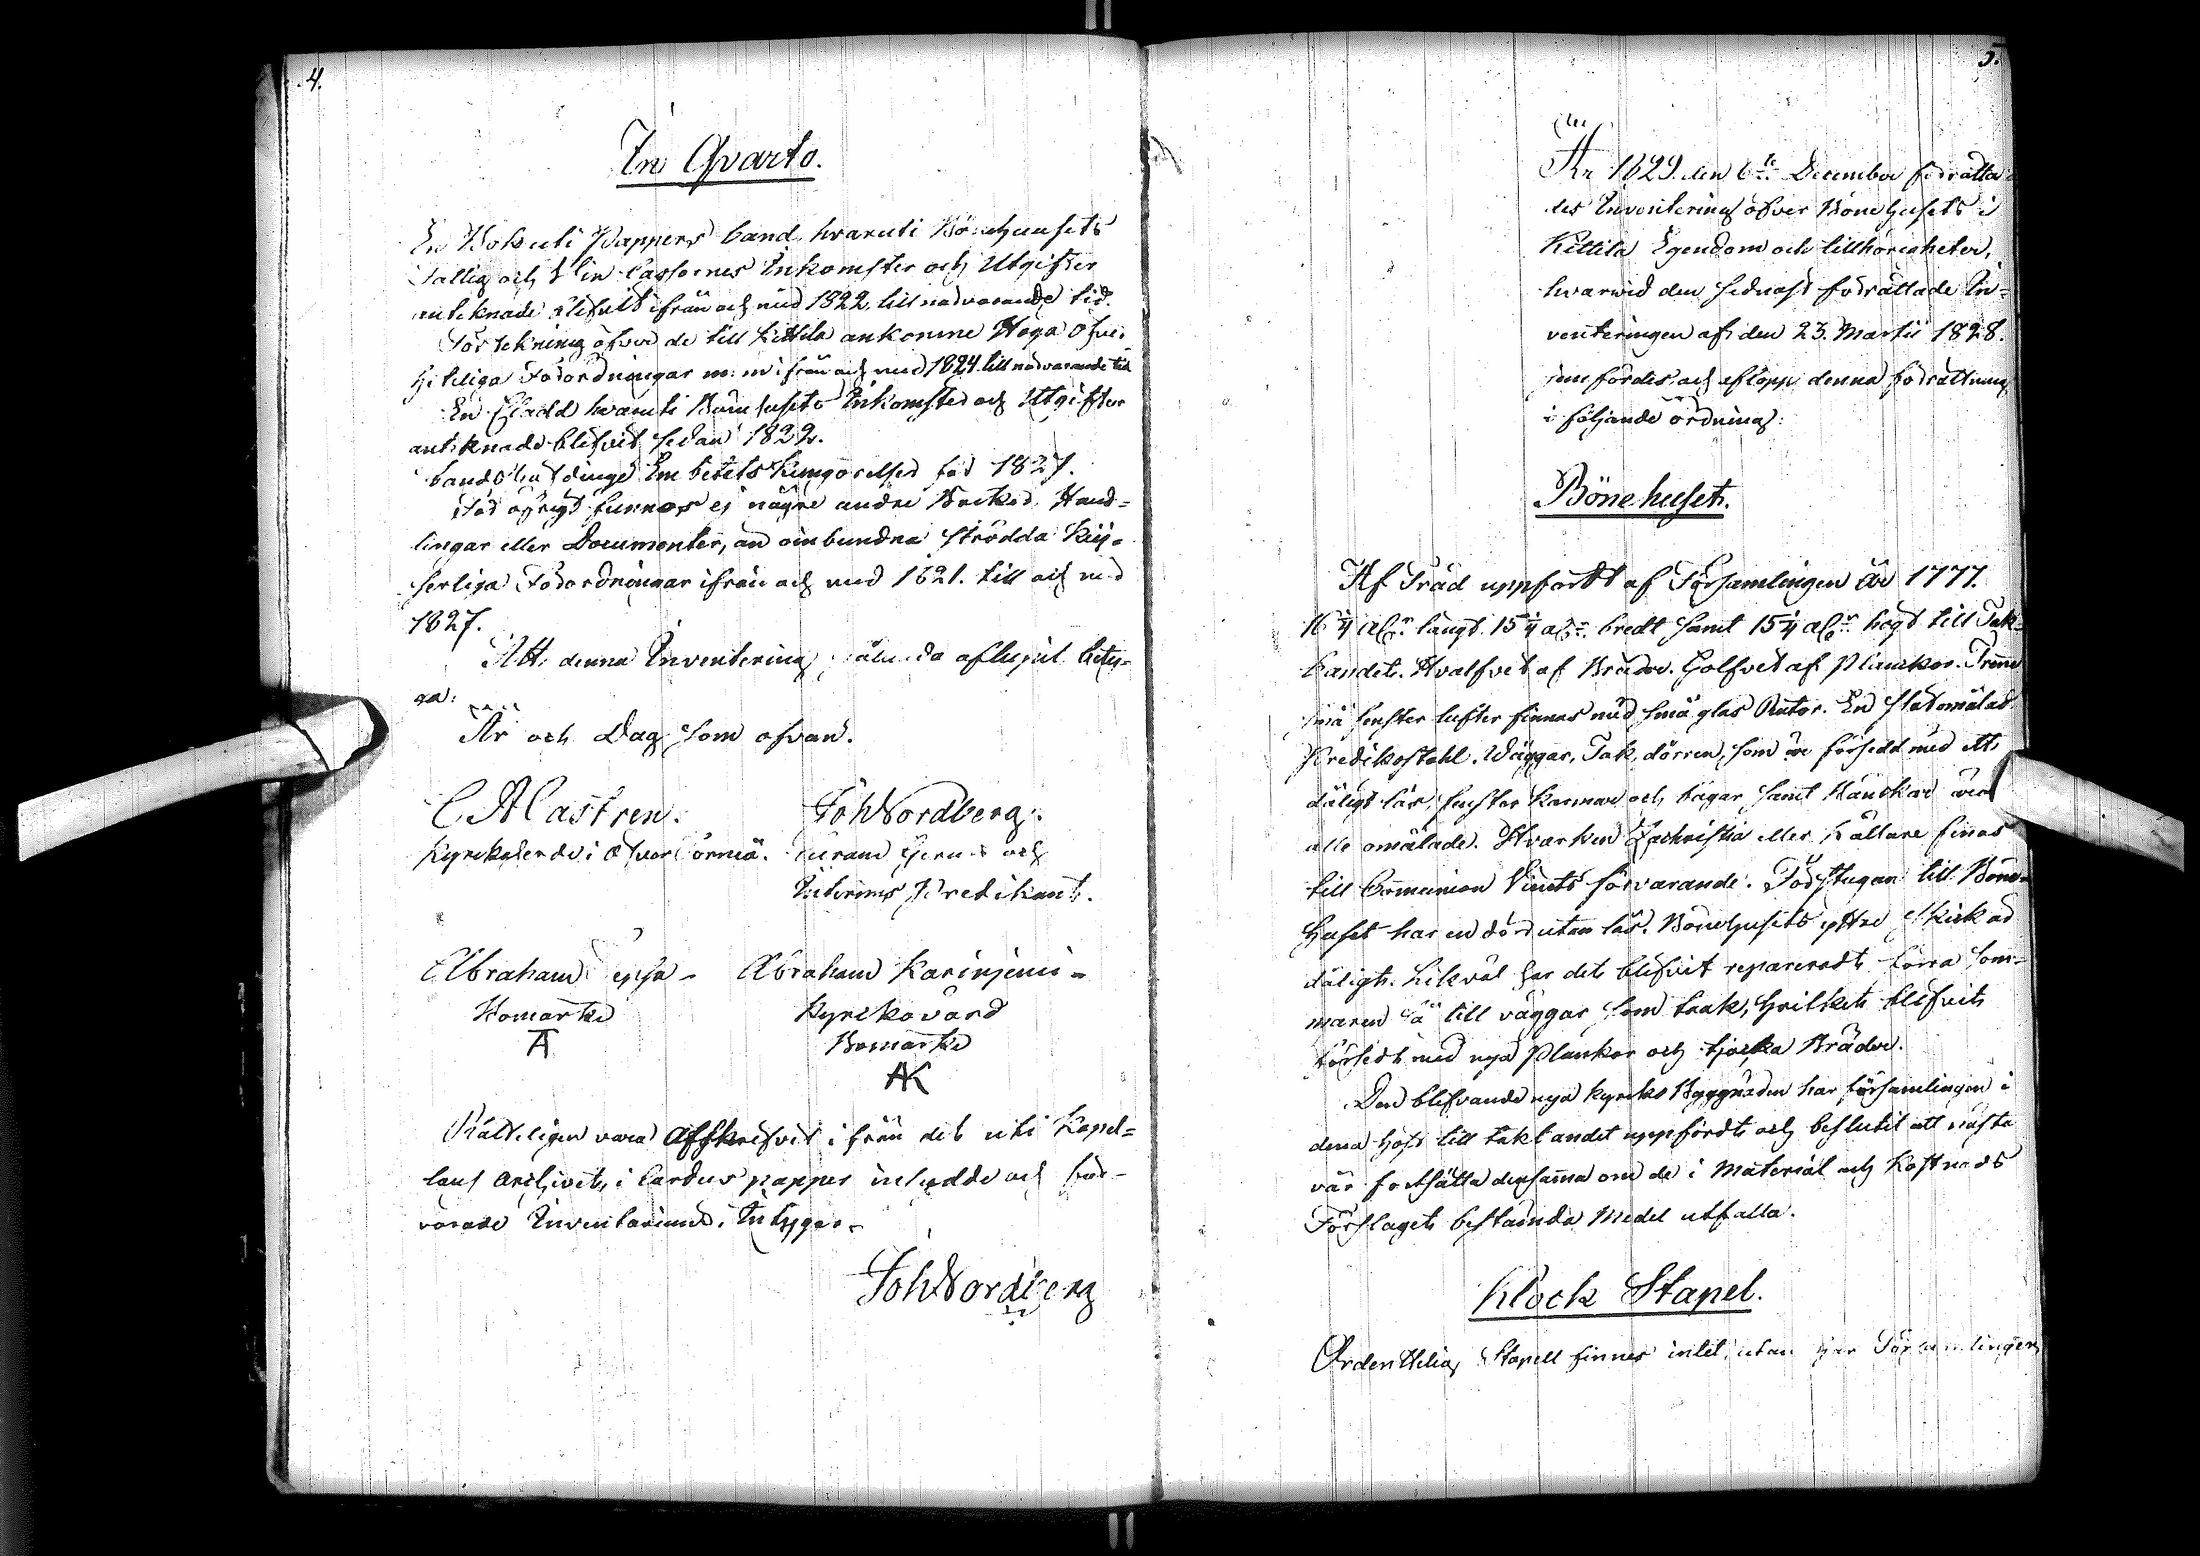 4.
In Qvarto.
En Bok uti Pappers band, hvaruti Bönehusets
Fattig och Lin Cassornes Inkomster och Utgifter
anteknade blifvit ifrån och med 1822. till närvarande tid.
Förtekning öfver de till Kittilä ankomne Höga Öfver-
heteliga Förordningar m: m ifrån och med 1824. till närvarande tid
En Cladd hvaruti Bönehusets Inkomster och Utgifter
anteknade blifvit sedan 1822.
Landshöfdinge Embetets Kungörelser för 1827.
För öfrigt funnos ej någre andre Böcker, Hand-
lingar eller Documenter, än oinbundna strödda Kej-
serliga Förordningar ifrån och med 1821. till och med
1827.
Att denna Inventering således aflupit bety-
ga:
År och Dag som ofvan.
C. A Castren. Joh Nordberg.
Kyrkoherde i Öfver Torneå.
Interims Predikant.
Abraham Abraham Karinjemi
Bomärke Kyrkovärd
Bomärke
AK
Rätteligen vara Afskrifvit ifrån det uti Kapel-
lans Archivet, i Cardus papper inhydde och för-
varade Inventarium, Intygar
Joh Nordberg
5.
År 1829. den 6te December förrätta-
des Inventering öfver Bönehusets i
Kittilä Egendom och tillhörigheter,
hvarvid den sednast förrättade In-
venteringen af den 23. Martii 1828.
jemfördes, och aflopp denna förrättning
i följande ordning:
Bönehuset.
Af Träd uppfördt af Församlingen år 1777.
16 1/4 aln: långt. 15 1/4 aln: bredt samt 15 1/4 aln: högt till Tak-
bandet. Hvalfvet af Bräder. Golfvet af Plankor. Trenne
små fenster lufter finnas med små glas Rutor. En slät omålad
Predikostohl. Väggar, Tak, dörren, som är försedd med ett
dåligt lås, fenster karmar och bågar samt Bänckar äro
alle omålade. Hvarken Sachristia eller Källare finnas
till Communion Vinets förvarande. Förstugan till Böne-
huset har en dörr utan lås. Bönehusets yttre skick är
dåligt. Likväl har det blifvit repareradt förra som-
maren så till väggar som taak, hvilket blifvit
försedt med nya Plankor och tjocka Bräder.
Den blifvande nya Kyrko Byggnaden har församlingen i
denna höst till takbandet uppfördt och beslutit att nästa
vår fortsätta densamma om de i Material och Kostnads
Förslaget bestämda Medel utfalla.
Klock Stapel.
Ordenthelig Stapell finnes intet, utan har Församlingen